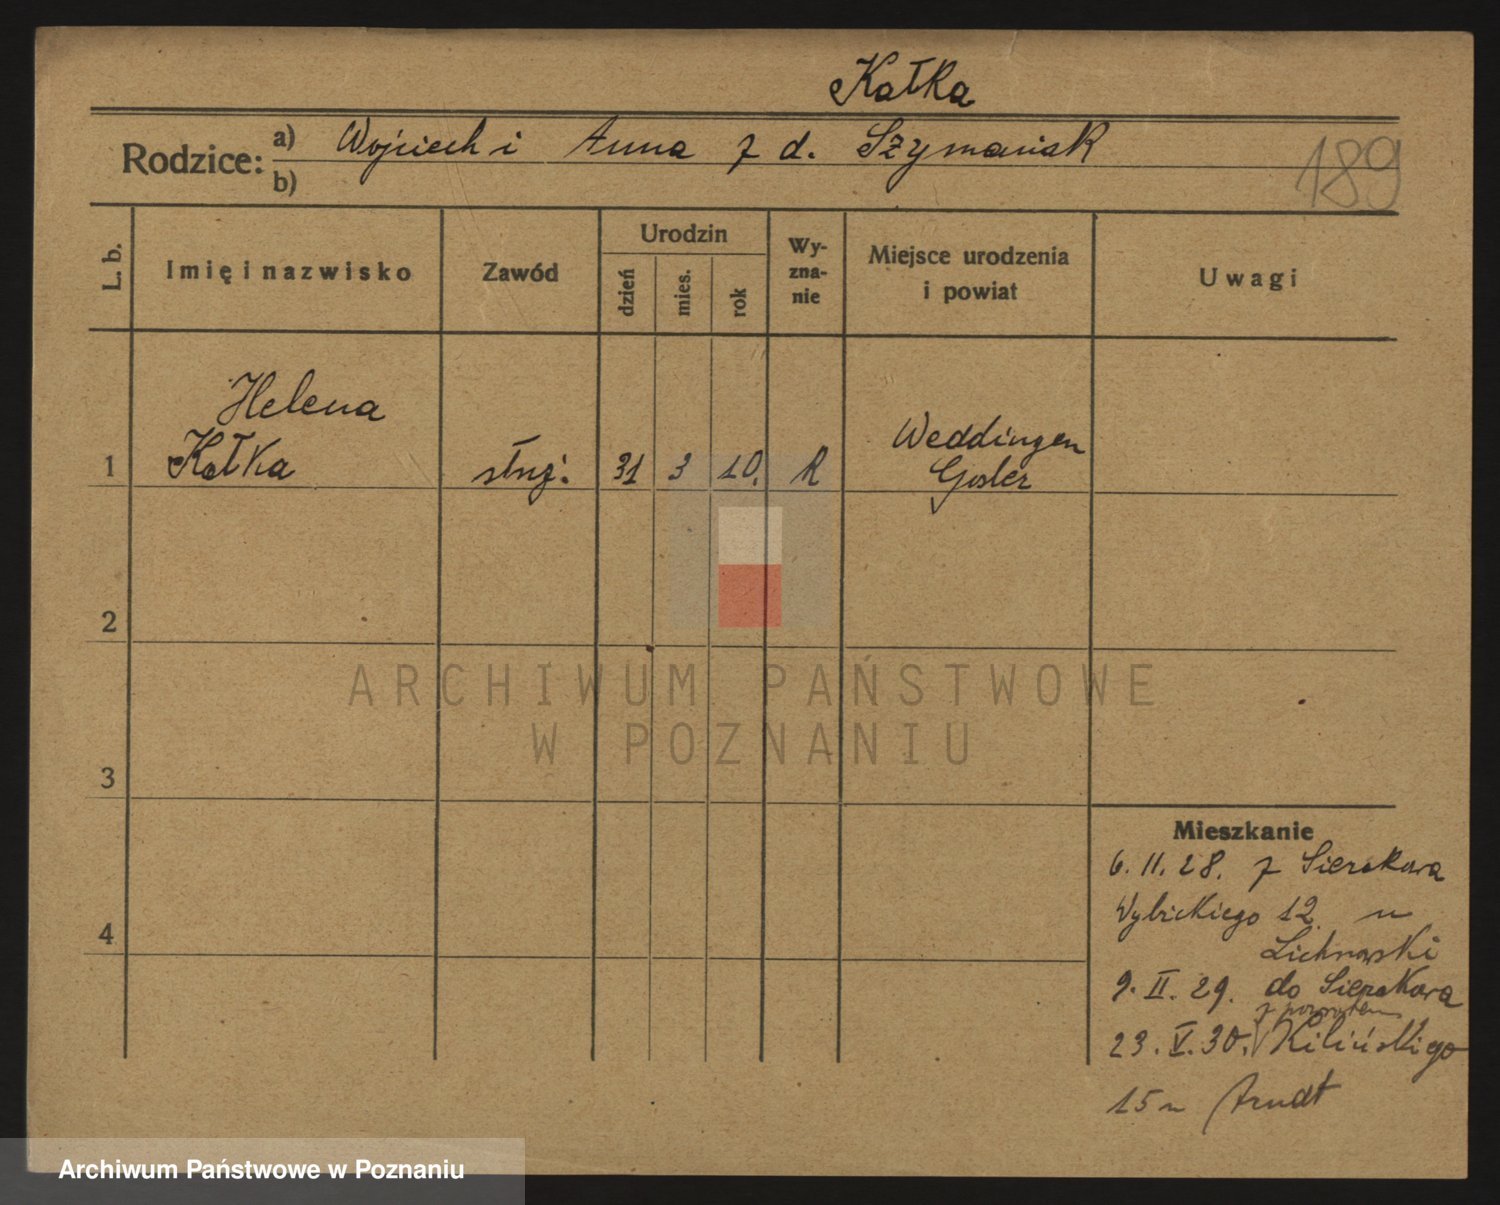 Kałka
Rodzice: a) Wojciech i Anna z d. Szymaniak
b)
189
L. b.
Imię i nazwisko
Zawód
Urodzin
dzień
mies.
rok
Wy-
zna-
nie
Miejsce urodzenia
i powiat
Uwagi
Helena
1 Kałka służ. 31 3 10. R Weddingen
Gosler
2
3
4
ARCHIWUM PAŃSTWOWE
W POZNANIU
Mieszkanie
6. II. 28. z Sierakowa
Wybickiego 12 u
Lichnowski
9. II. 29. do Sierakowa
z powrotem
23. V. 30. Kilińskiego
15 u Arndt
Archiwum Państwowe w Poznaniu